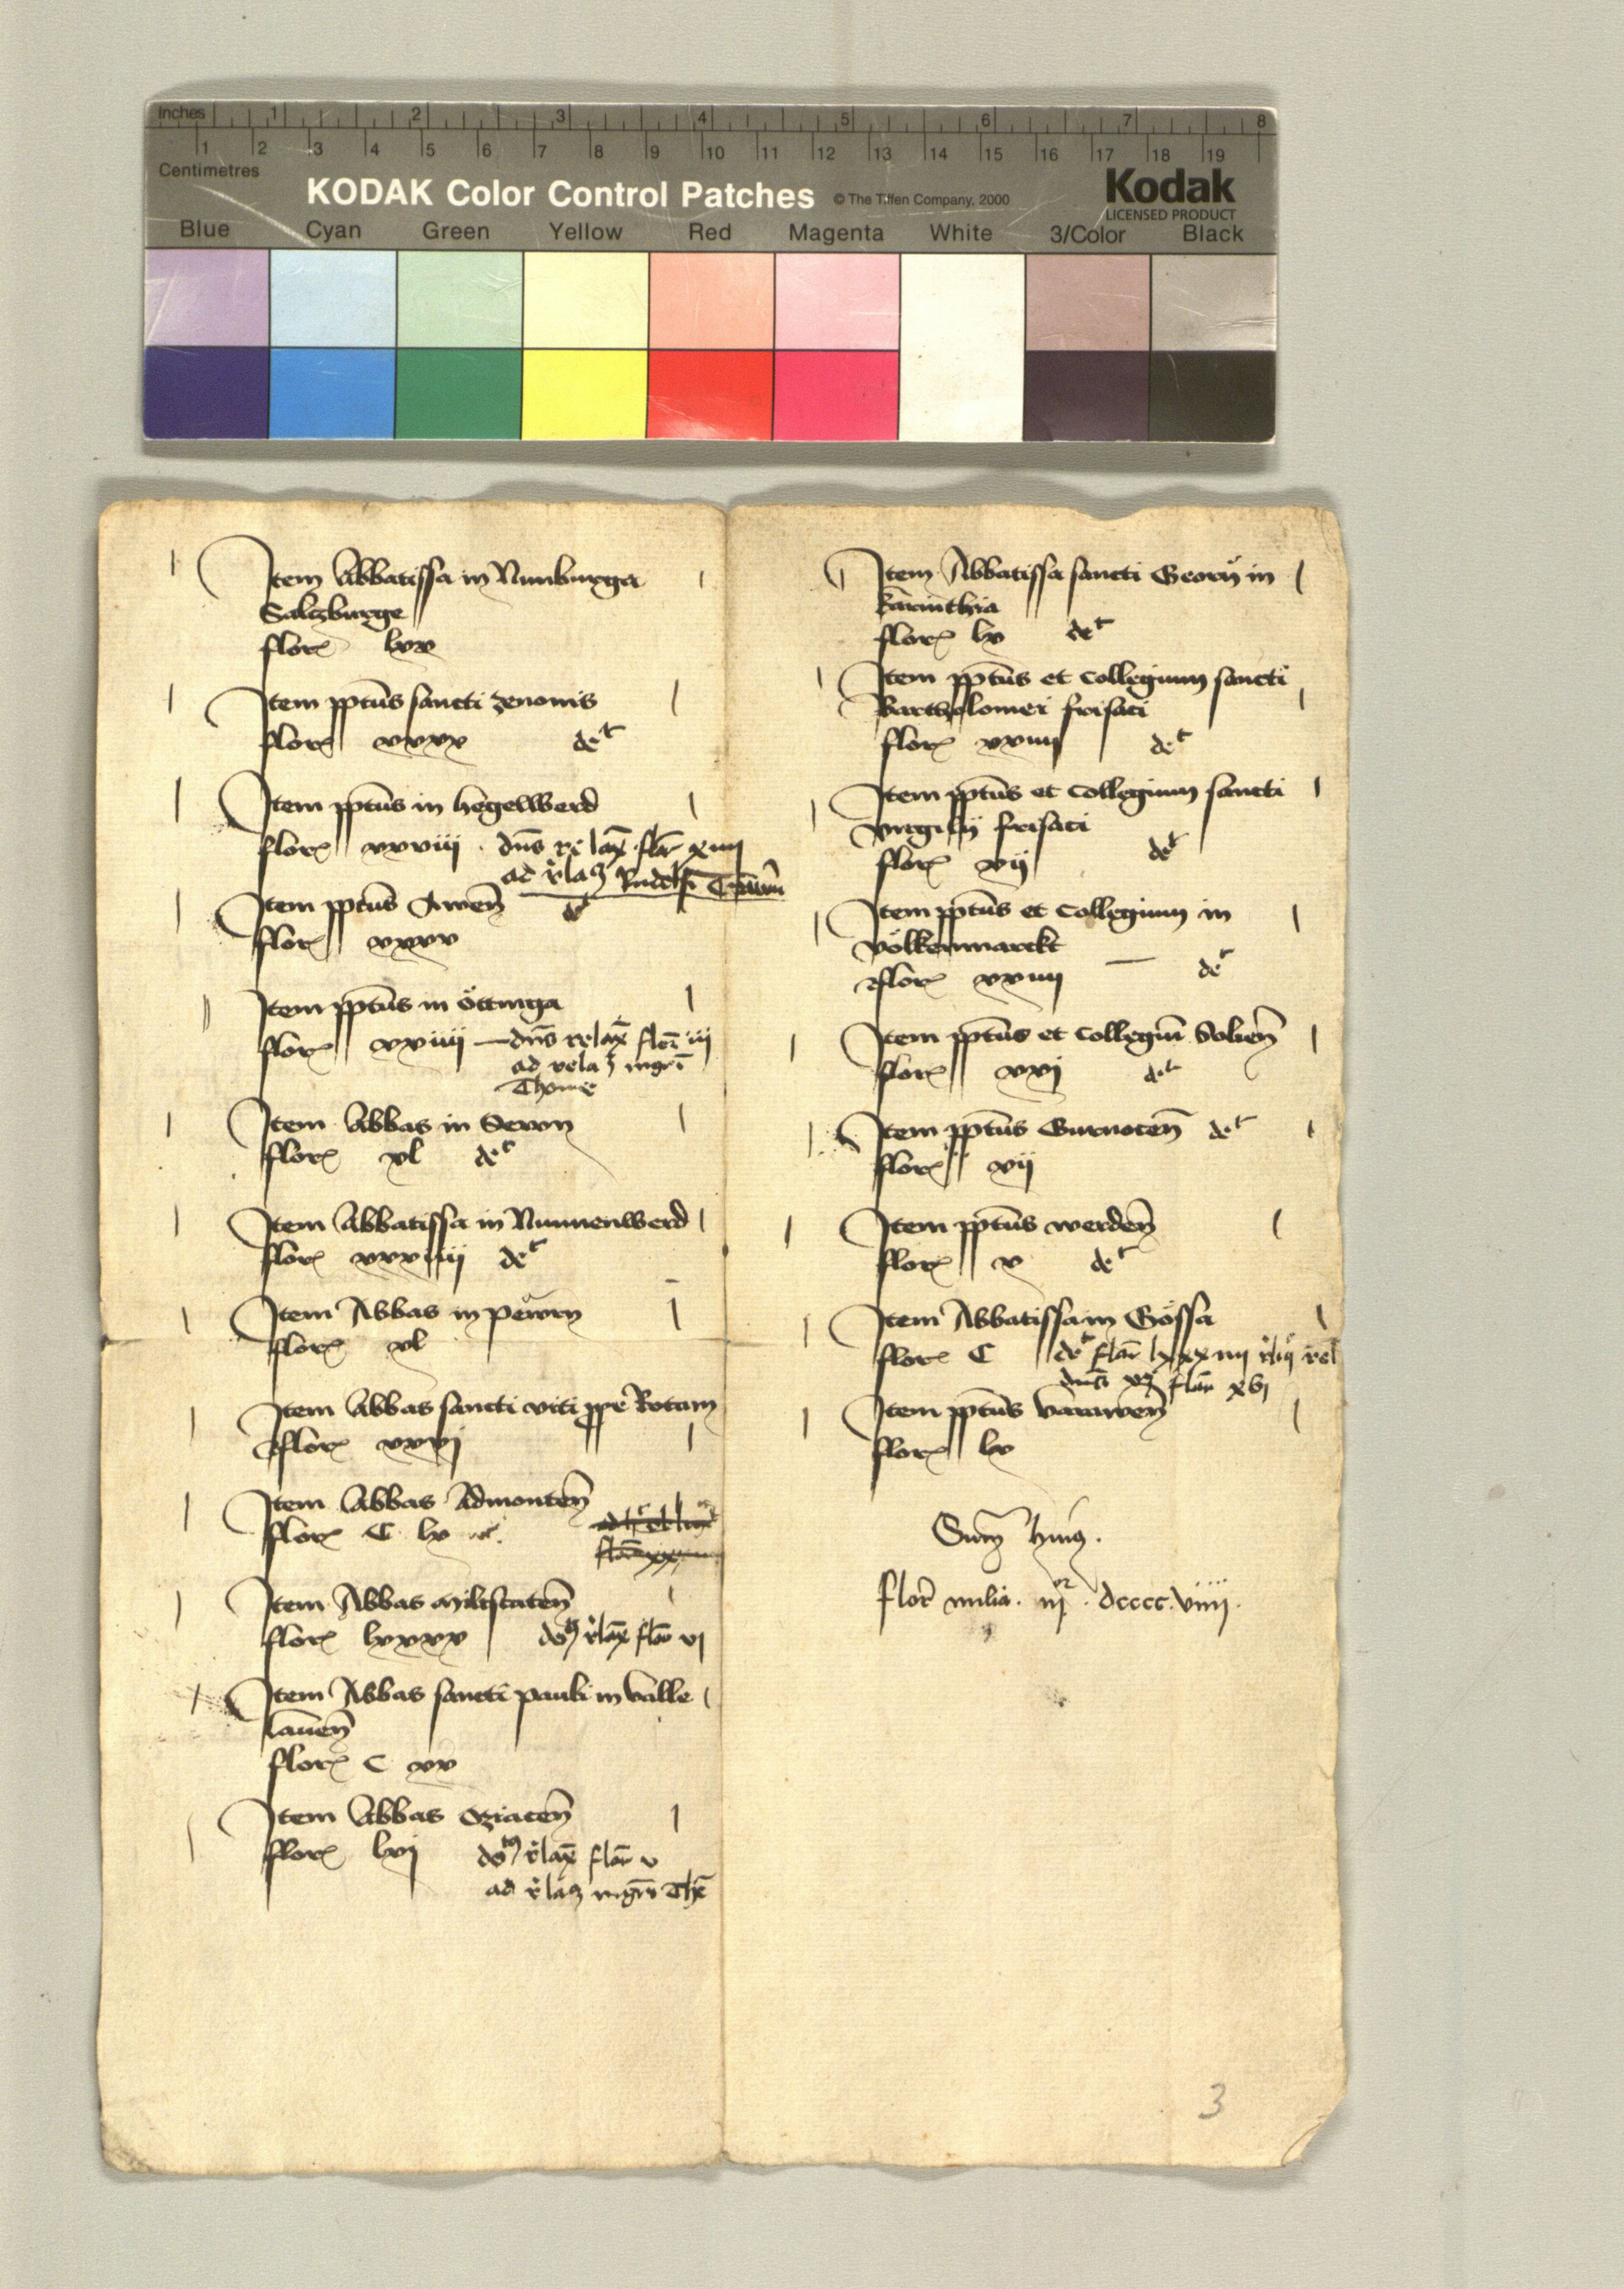 Inches 1 2 3 4 5 6 7 8
1 2 3 4 5 6 7 8 9 10 11 12 13 14 15 16 17 18 19
Centimetres
KODAK Color Control Patches © The Tiffen Company, 2000 Kodak
LICENSED PRODUCT
Blue Cyan Green Yellow Red Magenta White 3/Color Black
Item Abbatissa in Nunburga
Salczburge
flor lxx
Item pptūs sancti zenonis
florꝭ xxxx det
Item pptūs in hegelwerd
florꝭ xxviii dn̄s relax̄ flār xiiii
ad Rudolfi
Item pptūs Awen̄ det
florꝭ xxxv
Item pptūs in öttinga
florꝭ xxiiii dn̄s relax̄ flor iii
ad relaꝫ mgrī
Thome
Item Abbas in Sewn
florꝭ xl det
Item Abbatissa in Nunnenwerd
florꝭ xxxiiii det
Item Abbas in pewrn
florꝭ xl
Item Abbas sancti viti ppe Rotam
florꝭ xxvi
Item Abbas Admonten̄
florꝭ C lx
Item Abbas milstaten̄
florꝭ lxxxx rlax̄ flār vi
Item Abbas sancti pauli in valle
lauen̄
florꝭ C xx
Item Abbas Oziacen̄
florꝭ lvj rlax̄ flār v
ad rlaꝫ mgrī Thē
Item Abbatissa sancti Georӱ in
karinthia
florꝭ lx det
Item pptūs et Collegium sancti
Bartholomei frisaci
florꝭ xxiiii det
Item pptūs et Collegium sancti
virgilij frisaci
florꝭ xij det
Item pptūs et Collegium in
völkenmarckt
florꝭ xxiiii det
Item pptūs et collegiū Solien̄
florꝭ xxj det
Item pptūs Gurnocen̄ det
florꝭ xij
Item pptūs werden̄
florꝭ x det
Item Abbatissa in Gössa
florꝭ C det flār lxxxiiii
flār xvj
Item pptūs varawen̄
florꝭ lx
Sum̄ huiꝰ.
flor milia. iij. dcccc. viiii.
3